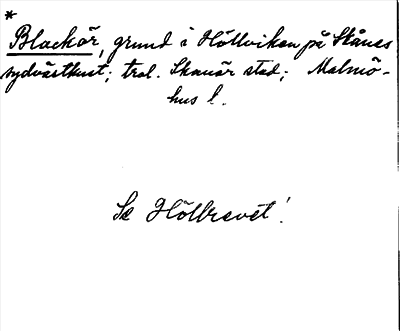 *
Blackör, grund i Höllviken på Skånes
sydvästkust; trol. Skanör stad; Malmö-
hus l.
Se Höllrevet!